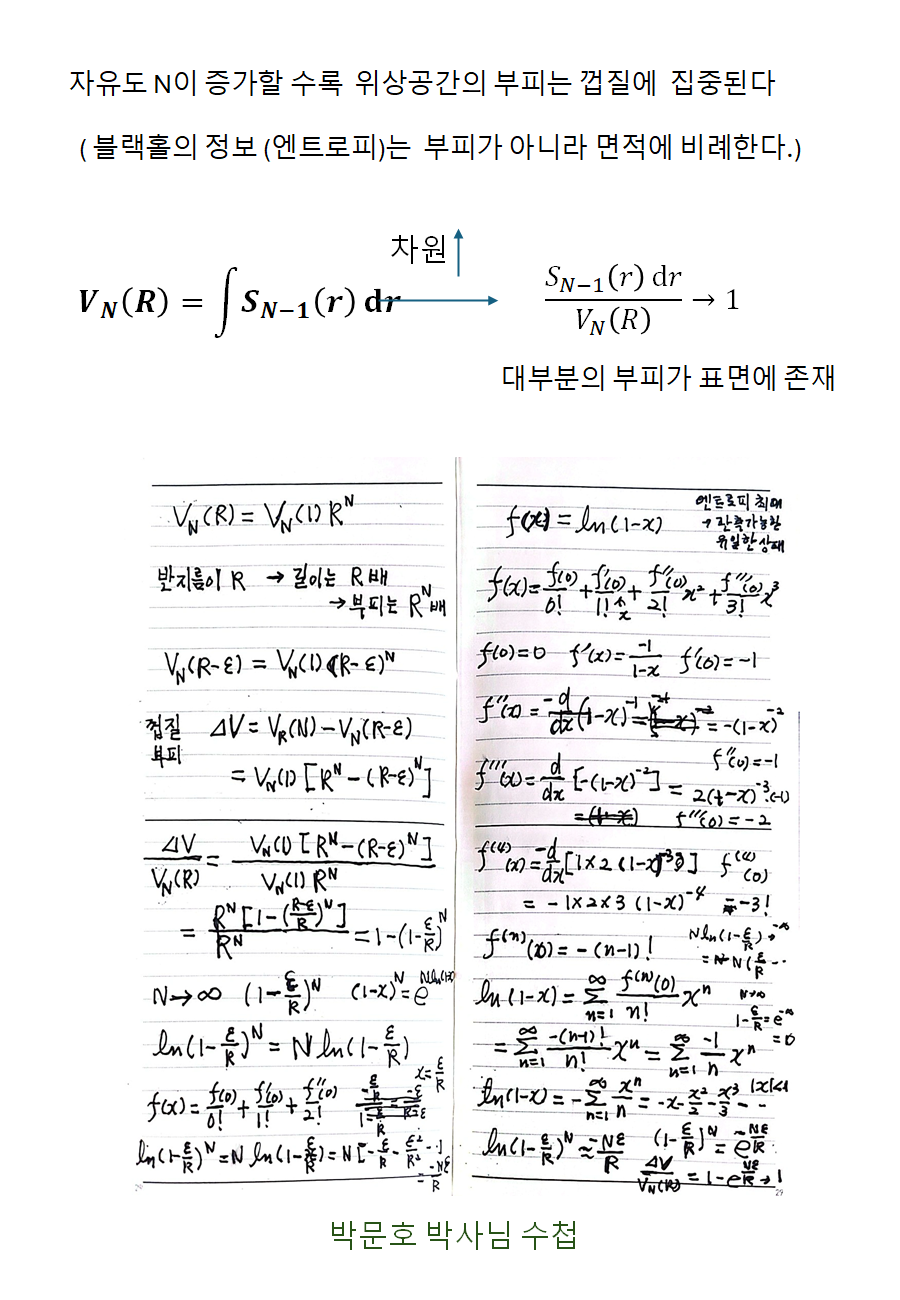 자유도 N이 증가할 수록 위상공간의 부피는 껍질에 집중된다
( 블랙홀의 정보 (엔트로피)는 부피가 아니라 면적에 비례한다.)
차원
V_N(R) = ∫ S_{N-1}(r) dr → S_{N-1}(r) dr / V_N(R) → 1
대부분의 부피가 표면에 존재
V_N(R) = V_N(1) R^N
반지름이 R → 길이는 R 배
→ 부피는 R^N 배
V_N(R-ε) = V_N(1) (R-ε)^N
껍질 부피 ΔV = V_R(N) - V_N(R-ε)
= V_N(1) [R^N - (R-ε)^N]
ΔV / V_N(R) = V_N(1) [R^N - (R-ε)^N] / V_N(1) R^N
= R^N [1 - ((R-ε)/R)^N] / R^N = 1 - (1 - ε/R)^N
N → ∞ (1 - ε/R)^N (1-x)^N = e^{N ln(1-x)}
ln(1 - ε/R)^N = N ln(1 - ε/R)
x = ε/R
f(x) = f(0)/0! + f'(0)/1! + f''(0)/2!
ln(1 - ε/R)^N = N ln(1 - ε/R) = N [-ε/R - ε²/R² - ··]
= -Nε/R
엔트로피 최대
→ 관측가능한
유일한 상태
f(x) = ln(1-x)
f(x) = f(0)/0! + f'(0)/1! x + f''(0)/2! x² + f'''(0)/3! x³
f(0) = 0 f'(x) = -1/(1-x) f'(0) = -1
f''(x) = -d/dx (1-x)^{-1} = -(1-x)^{-2}
f''(0) = -1
f'''(x) = d/dx [-(1-x)^{-2}] = 2(1-x)^{-3}·(-1)
f'''(0) = -2
f^{(4)}(x) = -d/dx [1×2 (1-x)^{-3}] f^{(4)}(0)
= -1×2×3 (1-x)^{-4} = -3!
f^{(n)}(0) = -(n-1)!
N ln(1 - ε/R) → -∞
= N(ε/R ··
ln(1-x) = Σ_{n=1}^{∞} f^{(n)}(0)/n! x^n
N→∞
1 - ε/R = e^{-∞}
= 0
= Σ_{n=1}^{∞} -(n-1)!/n! x^n = Σ_{n=1}^{∞} -1/n x^n
ln(1-x) = -Σ_{n=1}^{∞} x^n/n = -x - x²/2 - x³/3 - ·· |x|<1
ln(1 - ε/R)^N ≈ -Nε/R (1 - ε/R)^N = e^{-Nε/R}
ΔV / V_N(R) = 1 - e^{-Nε/R} → 1
29
박문호 박사님 수첩